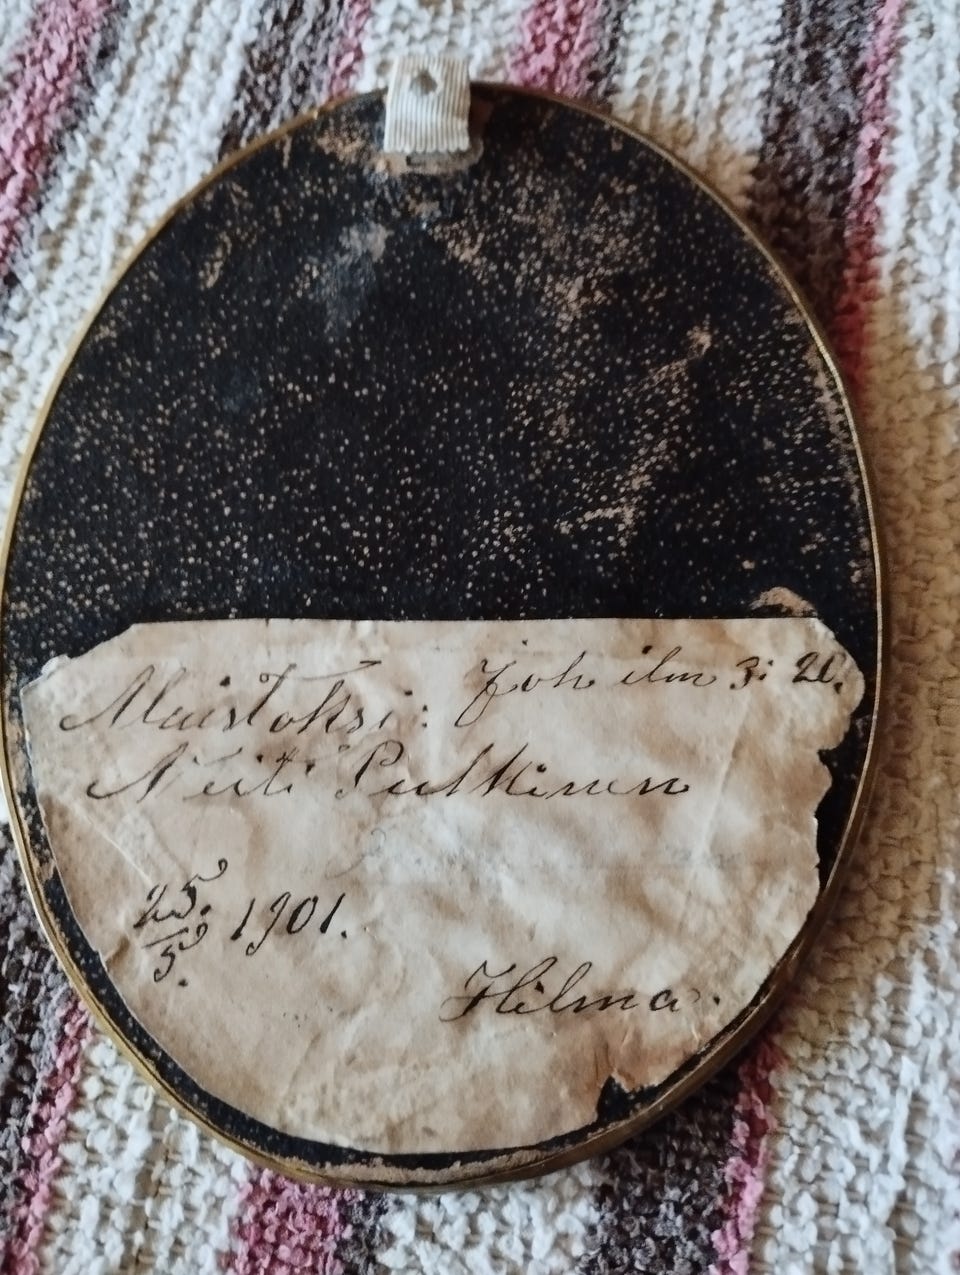 Muistoksi: Joh ilm 3: 20.
Neiti Pulkkinen
25./5. 1901.
Hilma.